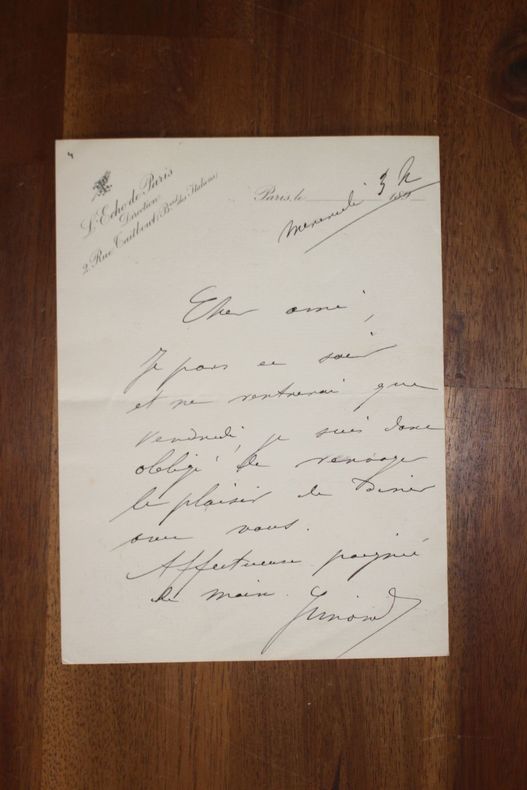 L'Echo de Paris
Direction
2, Rue Taitbout, (Bard des Italiens)
Paris, le 189
mercredi 3 h
Cher ami,
Je pars ce soir
et ne rentrerai que
vendredi, je suis donc
obligé de
le plaisir de diner
avec vous.
Affectueuse poignée
de main.
Simond